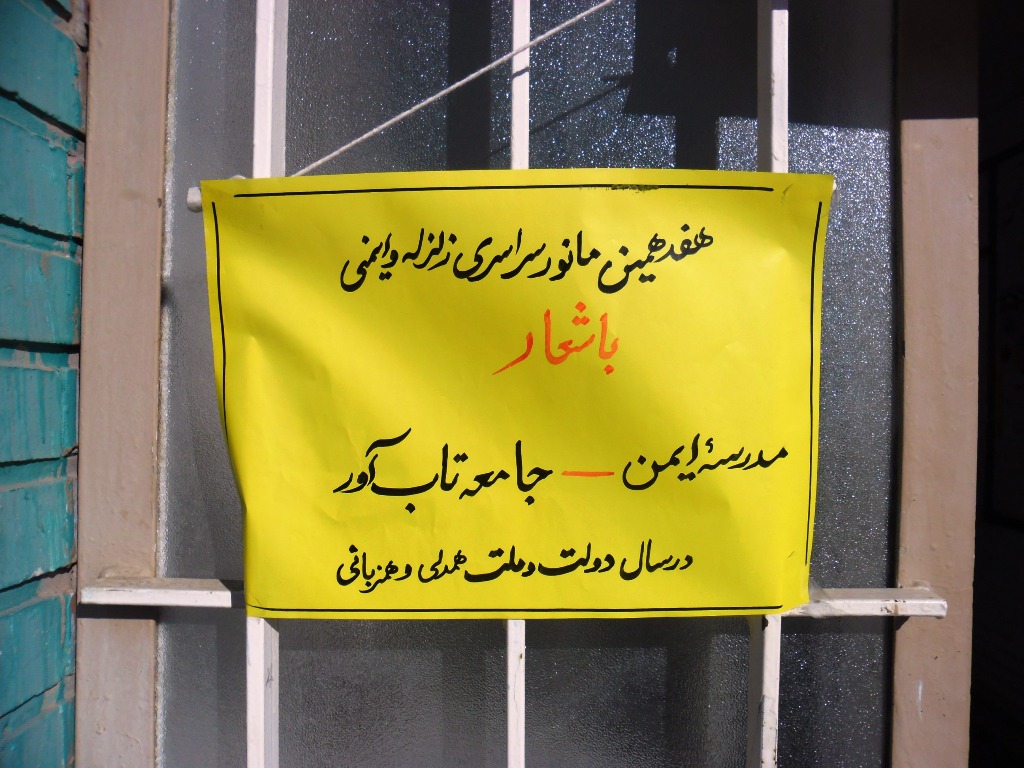 هفدهمین مانور سراسری زلزله و ایمنی
با شعار
مدرسهٔ ایمن — جامعه تاب آور
در سال دولت و ملت همدلی و همزبانی